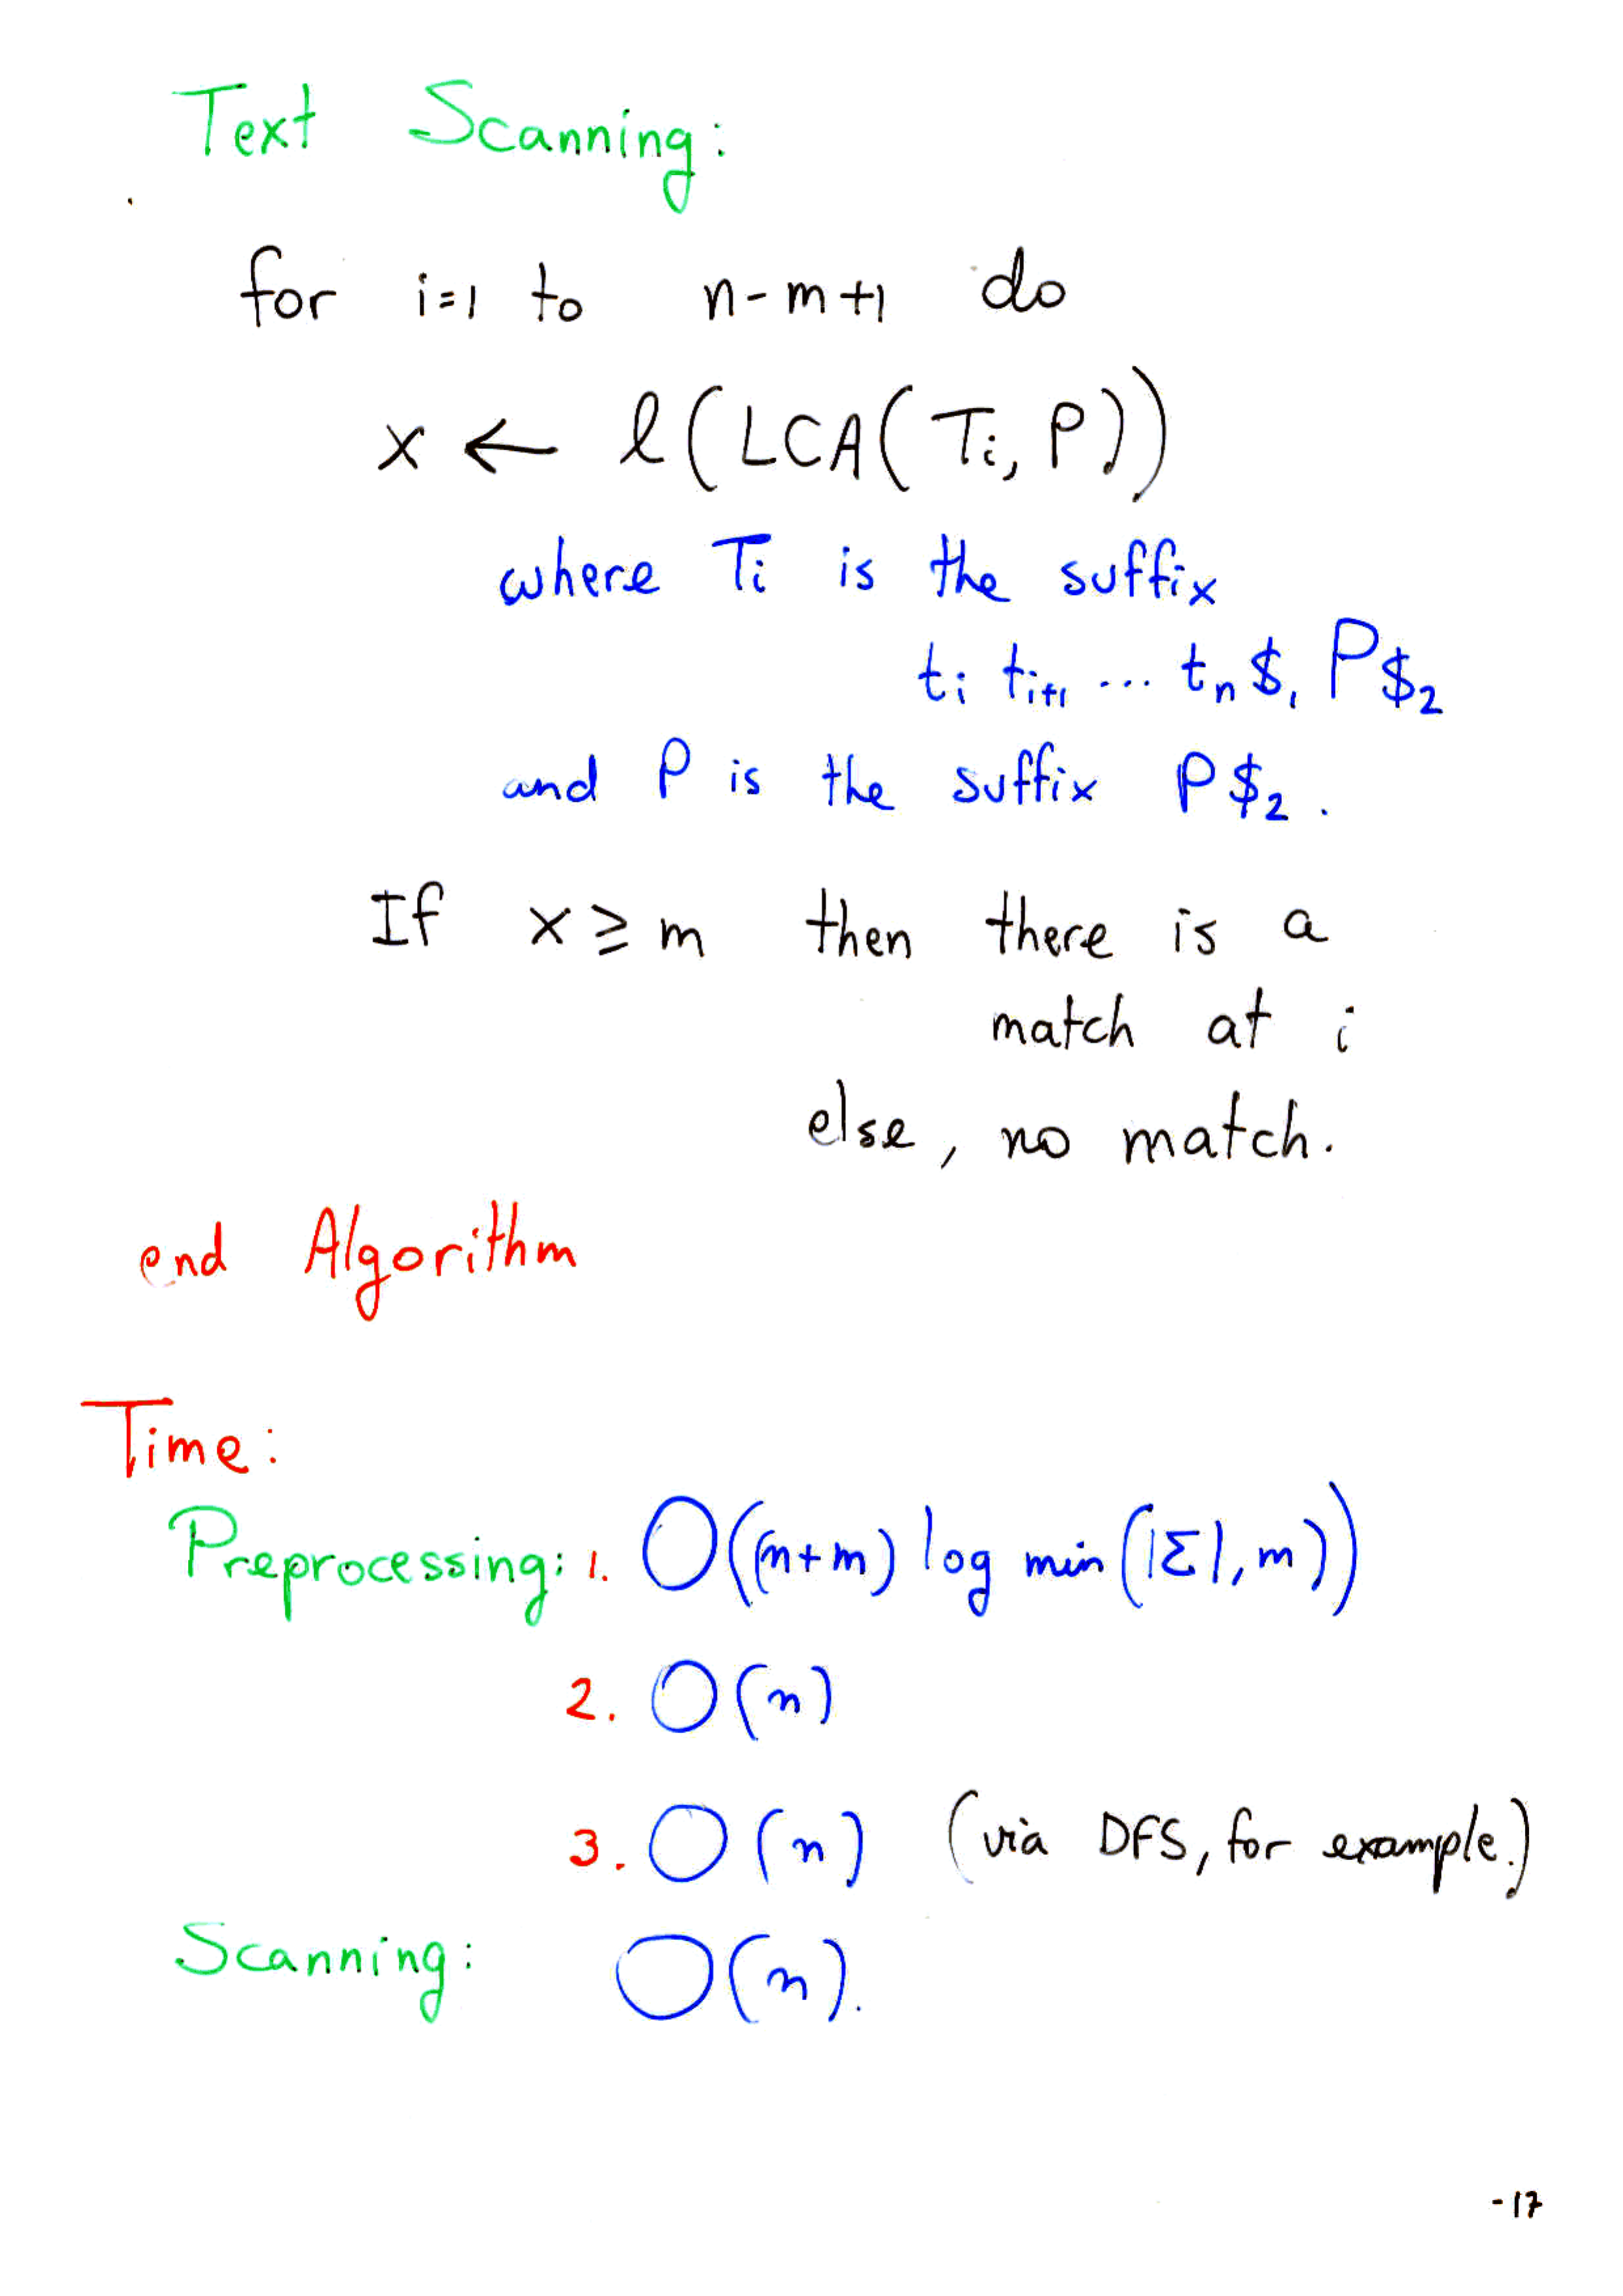 Text Scanning:
for i=1 to n-m+1 do
x ← l(LCA(Ti, P))
where Ti is the suffix
ti ti+1 ... tn $1 P$2
and P is the suffix P$2.
If x ≥ m then there is a
match at i
else, no match.
end Algorithm
Time:
Preprocessing: 1. O((n+m) log min(|Σ|, m))
2. O(n)
3. O(n) (via DFS, for example.)
Scanning: O(n).
-17